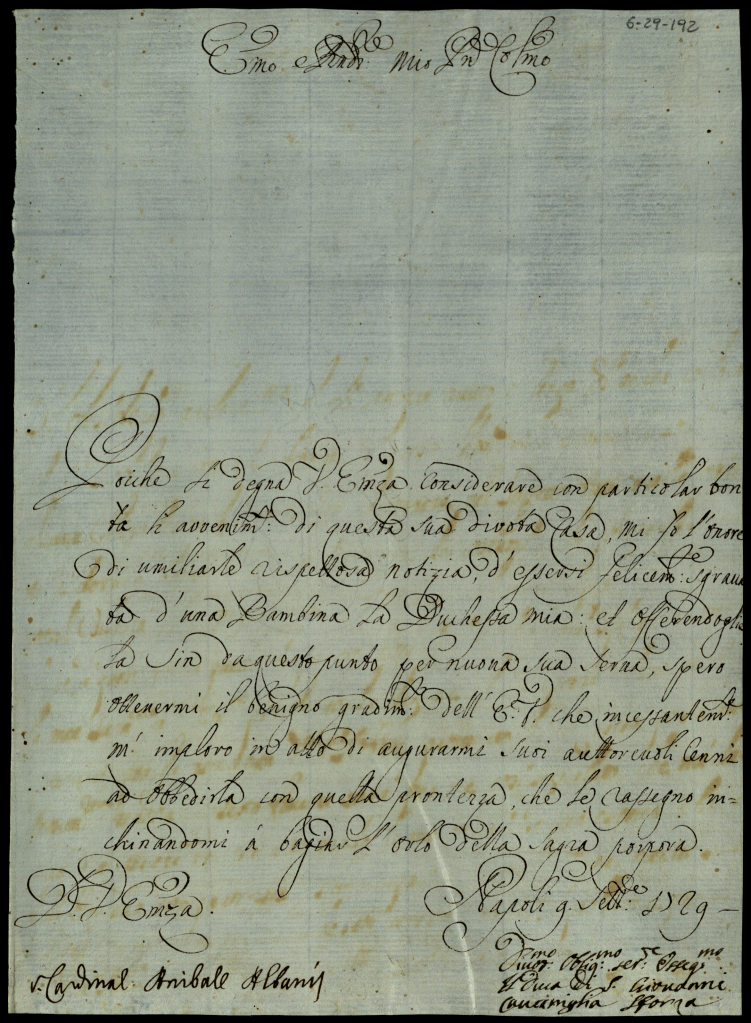 6-29-192
Emo e Rmo Sig.re Mio Pn Colmo
Poiche si degna V. Emza considerare con particolar bon
tà li avvenim.ti di questa sua divota Casa, mi fo l'onore
di umiliarle rispettosa notizia, d'essersi felicem.te sgrava
ta d'una Bambina la Duchessa mia: et offerendogli
la sin da questo punto per nuova sua serva, spero
ottenermi il benigno gradim.to dell'E. V. che incessantem.te
m'imploro in atto di augurarmi suoi auttorevoli Cenni
ad obbedirla con quella prontezza, che le rassegno in=
chinandomi à bagiar l'orlo della sagra porpora.
D. V. Emza. Napoli 9. Sett.bre 1729
Divot.mo Oblig.mo ser.re Osseq.mo
s. Cardinal Anibale Albani Il Duca di S. Giovanni
Caucimiglia Sforza